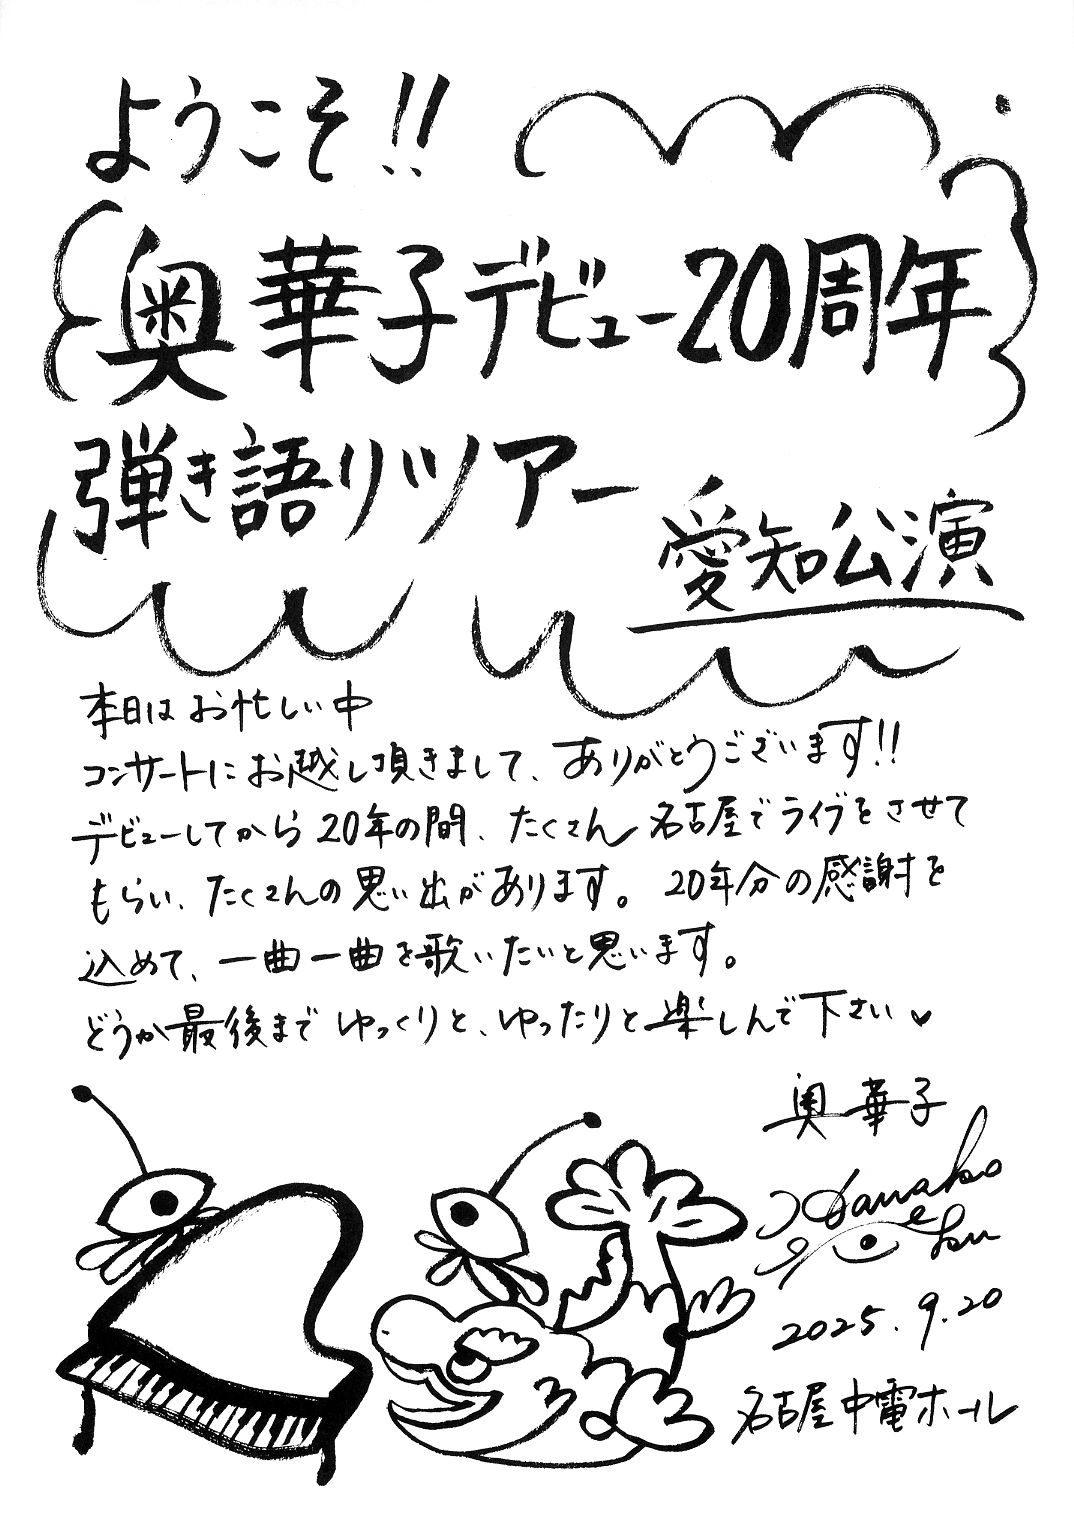 ようこそ!!
奥華子デビュー20周年
弾き語りツアー
愛知公演
本日はお忙しい中
コンサートにお越し頂きまして、ありがとうございます!!
デビューしてから20年の間、たくさん名古屋でライブをさせて
もらい、たくさんの思い出があります。20年分の感謝を
込めて、一曲一曲を歌いたいと思います。
どうか最後までゆっくりと、ゆったりと楽しんで下さい♥
奥華子
Hanako
Oku
2025.9.20
名古屋中電ホール